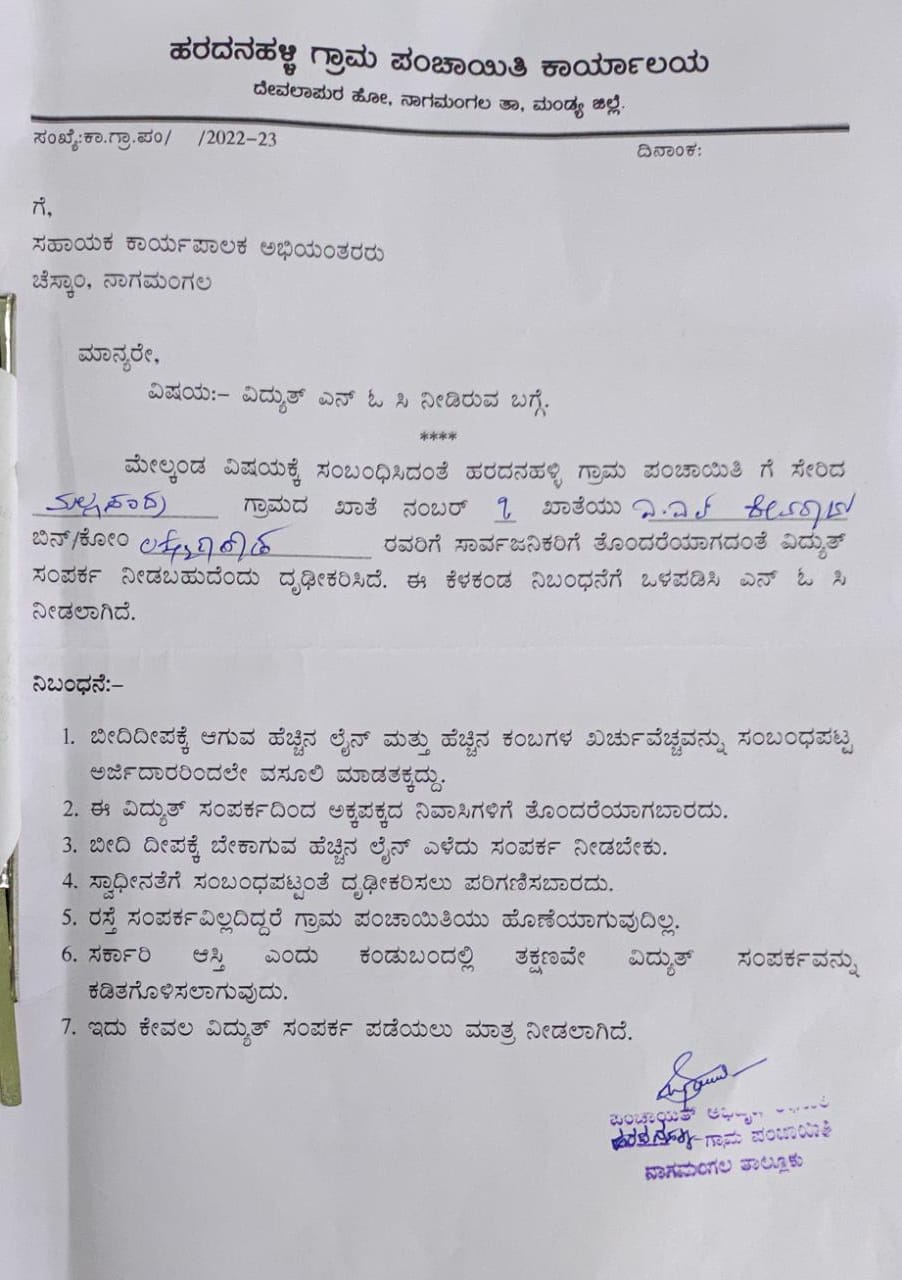 ಹರದನಹಳ್ಳಿ ಗ್ರಾಮ ಪಂಚಾಯಿತಿ ಕಾರ್ಯಾಲಯ
ದೇವಲಾಪುರ ಹೋ, ನಾಗಮಂಗಲ ತಾ, ಮಂಡ್ಯ ಜಿಲ್ಲೆ.
ಸಂಖ್ಯೆ:ಕಾ.ಗ್ರಾ.ಪಂ/ /2022-23
ದಿನಾಂಕ:
ಗೆ,
ಸಹಾಯಕ ಕಾರ್ಯಪಾಲಕ ಅಭಿಯಂತರರು
ಚೆಸ್ಕಾಂ, ನಾಗಮಂಗಲ
ಮಾನ್ಯರೇ,
ವಿಷಯ:- ವಿದ್ಯುತ್ ಎನ್ ಓ ಸಿ ನೀಡಿರುವ ಬಗ್ಗೆ.
****
ಮೇಲ್ಕಂಡ ವಿಷಯಕ್ಕೆ ಸಂಬಂಧಿಸಿದಂತೆ ಹರದನಹಳ್ಳಿ ಗ್ರಾಮ ಪಂಚಾಯಿತಿ ಗೆ ಸೇರಿದ
ಗ್ರಾಮದ ಖಾತೆ ನಂಬರ್ ಖಾತೆಯು
ಬಿನ್/ಕೋಂ ರವರಿಗೆ ಸಾರ್ವಜನಿಕರಿಗೆ ತೊಂದರೆಯಾಗದಂತೆ ವಿದ್ಯುತ್
ಸಂಪರ್ಕ ನೀಡಬಹುದೆಂದು ದೃಢೀಕರಿಸಿದೆ. ಈ ಕೆಳಕಂಡ ನಿಬಂಧನೆಗೆ ಒಳಪಡಿಸಿ ಎನ್ ಓ ಸಿ
ನೀಡಲಾಗಿದೆ.
ನಿಬಂಧನೆ:-
1. ಬೀದಿದೀಪಕ್ಕೆ ಆಗುವ ಹೆಚ್ಚಿನ ಲೈನ್ ಮತ್ತು ಹೆಚ್ಚಿನ ಕಂಬಗಳ ಖರ್ಚುವೆಚ್ಚವನ್ನು ಸಂಬಂಧಪಟ್ಟ
ಅರ್ಜಿದಾರರಿಂದಲೇ ವಸೂಲಿ ಮಾಡತಕ್ಕದ್ದು.
2. ಈ ವಿದ್ಯುತ್ ಸಂಪರ್ಕದಿಂದ ಅಕ್ಕಪಕ್ಕದ ನಿವಾಸಿಗಳಿಗೆ ತೊಂದರೆಯಾಗಬಾರದು.
3. ಬೀದಿ ದೀಪಕ್ಕೆ ಬೇಕಾಗುವ ಹೆಚ್ಚಿನ ಲೈನ್ ಎಳೆದು ಸಂಪರ್ಕ ನೀಡಬೇಕು.
4. ಸ್ವಾಧೀನತೆಗೆ ಸಂಬಂಧಪಟ್ಟಂತೆ ದೃಢೀಕರಿಸಲು ಪರಿಗಣಿಸಬಾರದು.
5. ರಸ್ತೆ ಸಂಪರ್ಕವಿಲ್ಲದಿದ್ದರೆ ಗ್ರಾಮ ಪಂಚಾಯಿತಿಯು ಹೊಣೆಯಾಗುವುದಿಲ್ಲ.
6. ಸರ್ಕಾರಿ ಆಸ್ತಿ ಎಂದು ಕಂಡುಬಂದಲ್ಲಿ ತಕ್ಷಣವೇ ವಿದ್ಯುತ್ ಸಂಪರ್ಕವನ್ನು
ಕಡಿತಗೊಳಿಸಲಾಗುವುದು.
7. ಇದು ಕೇವಲ ವಿದ್ಯುತ್ ಸಂಪರ್ಕ ಪಡೆಯಲು ಮಾತ್ರ ನೀಡಲಾಗಿದೆ.
ಪಂಚಾಯತ್
ಗ್ರಾಮ ಪಂಚಾಯಿತಿ
ನಾಗಮಂಗಲ ತಾಲ್ಲೂಕು